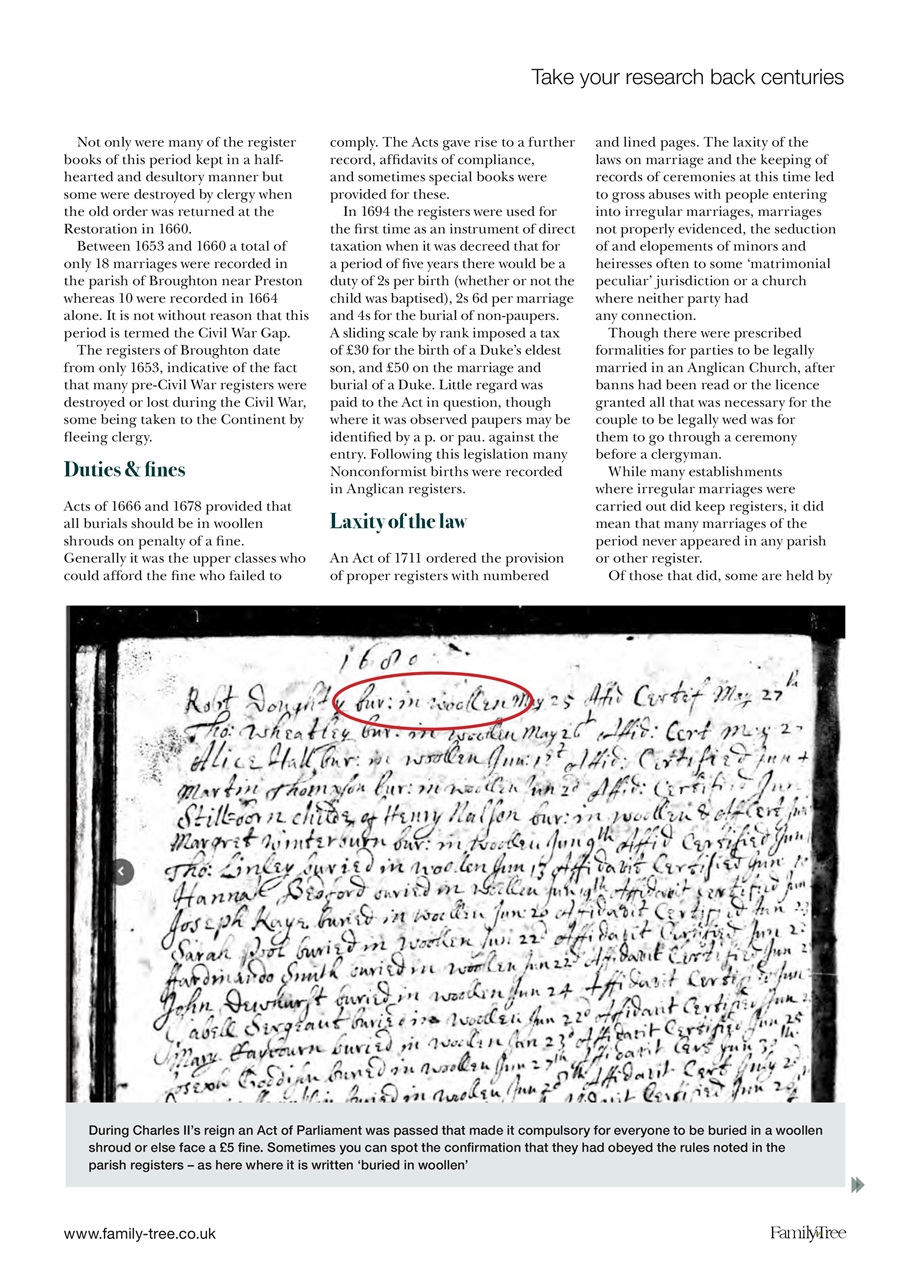 Take your research back centuries
Not only were many of the register
books of this period kept in a half-
hearted and desultory manner but
some were destroyed by clergy when
the old order was returned at the
Restoration in 1660.
Between 1653 and 1660 a total of
only 18 marriages were recorded in
the parish of Broughton near Preston
whereas 10 were recorded in 1664
alone. It is not without reason that this
period is termed the Civil War Gap.
The registers of Broughton date
from only 1653, indicative of the fact
that many pre-Civil War registers were
destroyed or lost during the Civil War,
some being taken to the Continent by
fleeing clergy.
Duties & fines
Acts of 1666 and 1678 provided that
all burials should be in woollen
shrouds on penalty of a fine.
Generally it was the upper classes who
could afford the fine who failed to
comply. The Acts gave rise to a further
record, affidavits of compliance,
and sometimes special books were
provided for these.
In 1694 the registers were used for
the first time as an instrument of direct
taxation when it was decreed that for
a period of five years there would be a
duty of 2s per birth (whether or not the
child was baptised), 2s 6d per marriage
and 4s for the burial of non-paupers.
A sliding scale by rank imposed a tax
of £30 for the birth of a Duke's eldest
son, and £50 on the marriage and
burial of a Duke. Little regard was
paid to the Act in question, though
where it was observed paupers may be
identified by a p. or pau. against the
entry. Following this legislation many
Nonconformist births were recorded
in Anglican registers.
Laxity of the law
An Act of 1711 ordered the provision
of proper registers with numbered
and lined pages. The laxity of the
laws on marriage and the keeping of
records of ceremonies at this time led
to gross abuses with people entering
into irregular marriages, marriages
not properly evidenced, the seduction
of and elopements of minors and
heiresses often to some 'matrimonial
peculiar' jurisdiction or a church
where neither party had
any connection.
Though there were prescribed
formalities for parties to be legally
married in an Anglican Church, after
banns had been read or the licence
granted all that was necessary for the
couple to be legally wed was for
them to go through a ceremony
before a clergyman.
While many establishments
where irregular marriages were
carried out did keep registers, it did
mean that many marriages of the
period never appeared in any parish
or other register.
Of those that did, some are held by
1680
Robt Doughty bur: in woollen May 25 Affid Certif May 27th
Tho: Wheatley bur: in woollen May 26 Affid: Cert May 2
Alice Hall bur: in woollen Jun: 1st Affid: Certified Jun 4
Martin Thomason bur: in woollen Jun 2d Affid: Certified Jun
Stillborn child of Henry bur: in woollen & Cert Jun
Margret Winterburn bur: in woollen Jun 9th Affid Certified Jun
Tho: Linley buried in woollen Jun 13 Affidavit Certified Jun
Hannah Bedford buried in woollen Jun 19th Affidavit certified Jun
Joseph Kaye buried in woollen Jun 20 Affidavit Certified Jun 23
Sarah buried in woollen Jun 22d Affidavit Certified Jun 2
Smith buried in woollen Jun 22d Affidavit Certified Jun 2
John Dewhurst buried in woollen Jun 24 Affidavit Certified Jun
Sergeant buried in woollen Jun 22d Affidavit Certified Jun 2
Mary buried in woollen Jun 23d Affidavit Certified Jun 25
Joseph buried in woollen Jun 27th Affidavit Cert Jun 30th
in woollen Jun Affidavit Cert
During Charles II's reign an Act of Parliament was passed that made it compulsory for everyone to be buried in a woollen
shroud or else face a £5 fine. Sometimes you can spot the confirmation that they had obeyed the rules noted in the
parish registers – as here where it is written 'buried in woollen'
www.family-tree.co.uk
FamilyTree